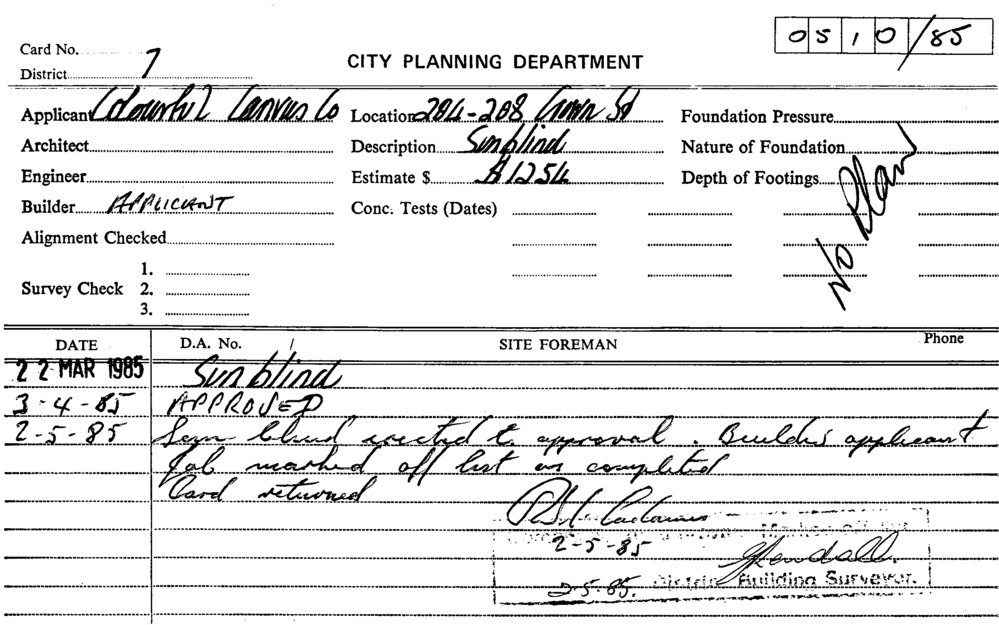 0510/85
Card No.
District 7
CITY PLANNING DEPARTMENT
Applicant Colourful Canvas Co Location 204-208 Crown St Foundation Pressure
Architect Description Sunblind Nature of Foundation
Engineer Estimate $ $1254 Depth of Footings
Builder APPLICANT Conc. Tests (Dates)
No Plan
Alignment Checked
1.
Survey Check 2.
3.
DATE D.A. No. / SITE FOREMAN Phone
22 MAR 1985 Sunblind
3-4-85 APPROVED
2-5-85 Sun blind erected to approval. Builder applicant
Job marked off list as completed
Card returned
2-5-85
2-5-85. District Building Surveyor.